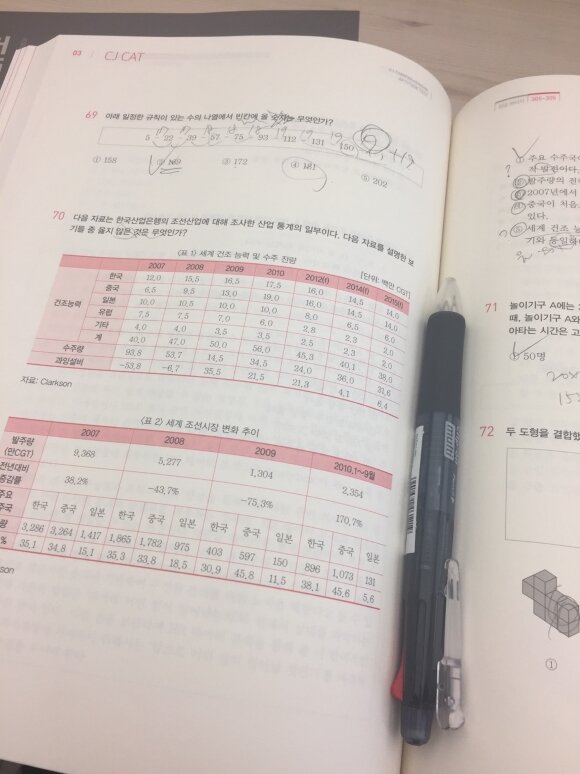 03 CJ CAT
69 아래 일정한 규칙이 있는 수의 나열에서 빈칸에 올 숫자는 무엇인가?
5 22 39 57 75 93 112 131 150
① 158 ② 169 ③ 172 ④ 181 ⑤ 202
70 다음 자료는 한국산업은행의 조선산업에 대해 조사한 산업 통계의 일부이다. 다음 자료를 설명한 보
기를 중 옳지 않은 것은 무엇인가?
〈표 1〉 세계 건조 능력 및 수주 잔량
[단위: 백만 CGT]
2007 2008 2009 2010 2012(f) 2014(f) 2015(f)
건조능력
한국 12.0 15.5 16.5 17.5 16.0 14.5 14.0
중국 6.5 9.5 13.0 19.0 16.0 14.5 14.0
일본 10.0 10.5 10.0 10.0 8.0 6.5 6.0
유럽 7.5 7.5 7.0 6.0 2.8 2.3 2.0
기타 4.0 4.0 3.5 3.5 2.5 2.3 2.0
계 40.0 47.0 50.0 56.0 45.3 40.1 38.0
수주량 93.8 53.7 14.5 34.5 24.0 36.0 31.6
과잉설비 -53.8 -6.7 35.5 21.5 21.3 4.1 6.4
자료: Clarkson
〈표 2〉 세계 조선시장 변화 추이
2007 2008 2009 2010.1~9월
발주량
(만CGT) 9,368 5,277 1,304 2,354
전년대비
증감률 38.2% -43.7% -75.3% 170.7%
주요
주국 한국 중국 일본 한국 중국 일본 한국 중국 일본 한국 중국 일본
량 3,286 3,264 1,417 1,865 1,782 975 403 597 150 896 1,073 131
% 35.1 34.8 15.1 35.3 33.8 18.5 30.9 45.8 11.5 38.1 45.6 5.6
son
305-306
주요 수주국
작 발전이다.
발주량의 전
2007년에서
중국이 처음
있다.
세계 건조 능
기와 동일하
71 놀이기구 A에는
때, 놀이기구 A와
아타는 시간은 고
① 50명
72 두 도형을 결합했
①